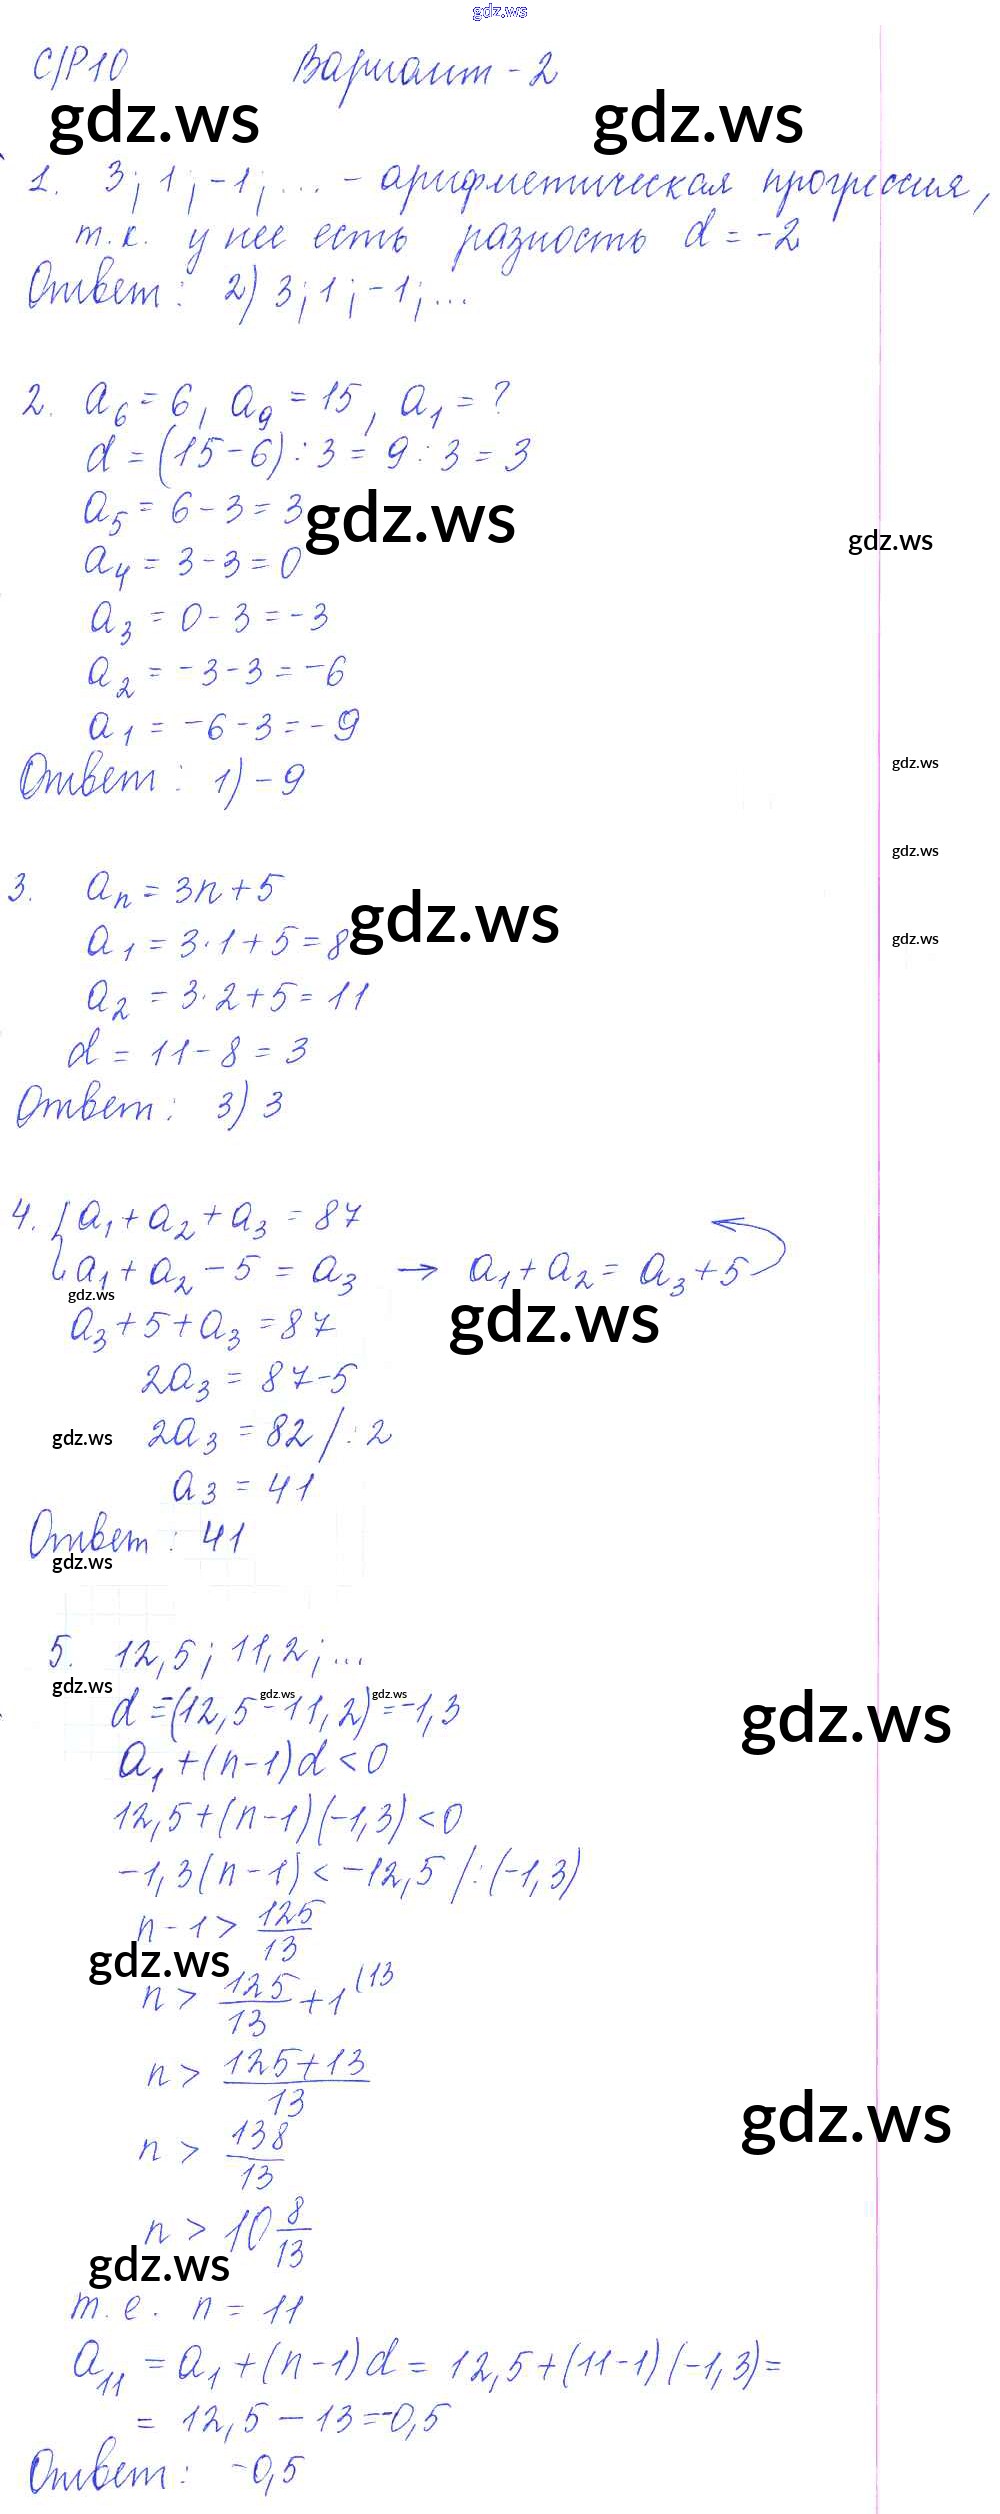 gdz.ws
С/Р10 Вариант - 2
gdz.ws gdz.ws
1. 3; 1; -1; ... - арифметическая прогрессия,
т.к. у нее есть разность d = -2
Ответ: 2) 3; 1; -1; ...
2. a₆ = 6, a₉ = 15, a₁ = ?
d = (15 - 6) : 3 = 9 : 3 = 3
a₅ = 6 - 3 = 3
gdz.ws
gdz.ws
a₄ = 3 - 3 = 0
a₃ = 0 - 3 = -3
a₂ = -3 - 3 = -6
a₁ = -6 - 3 = -9
gdz.ws
Ответ: 1) -9
gdz.ws
3. aₙ = 3n + 5
gdz.ws
gdz.ws
a₁ = 3·1 + 5 = 8
a₂ = 3·2 + 5 = 11
d = 11 - 8 = 3
Ответ: 3) 3
4. { a₁ + a₂ + a₃ = 87
a₁ + a₂ - 5 = a₃ → a₁ + a₂ = a₃ + 5
gdz.ws
gdz.ws
a₃ + 5 + a₃ = 87
2a₃ = 87 - 5
gdz.ws
2a₃ = 82 / : 2
a₃ = 41
Ответ: 41
gdz.ws
5. 12,5; 11,2; ...
gdz.ws
gdz.ws gdz.ws
gdz.ws
d = -(12,5 - 11,2) = -1,3
a₁ + (n - 1)d < 0
12,5 + (n - 1)(-1,3) < 0
-1,3(n - 1) < -12,5 / : (-1,3)
n - 1 > 125/13
gdz.ws
n > 125/13 + 1 (13
n > (125 + 13)/13
gdz.ws
n > 138/13
n > 10 8/13
gdz.ws
т.е. n = 11
a₁₁ = a₁ + (n - 1)d = 12,5 + (11 - 1)(-1,3) =
= 12,5 - 13 = -0,5
Ответ: -0,5